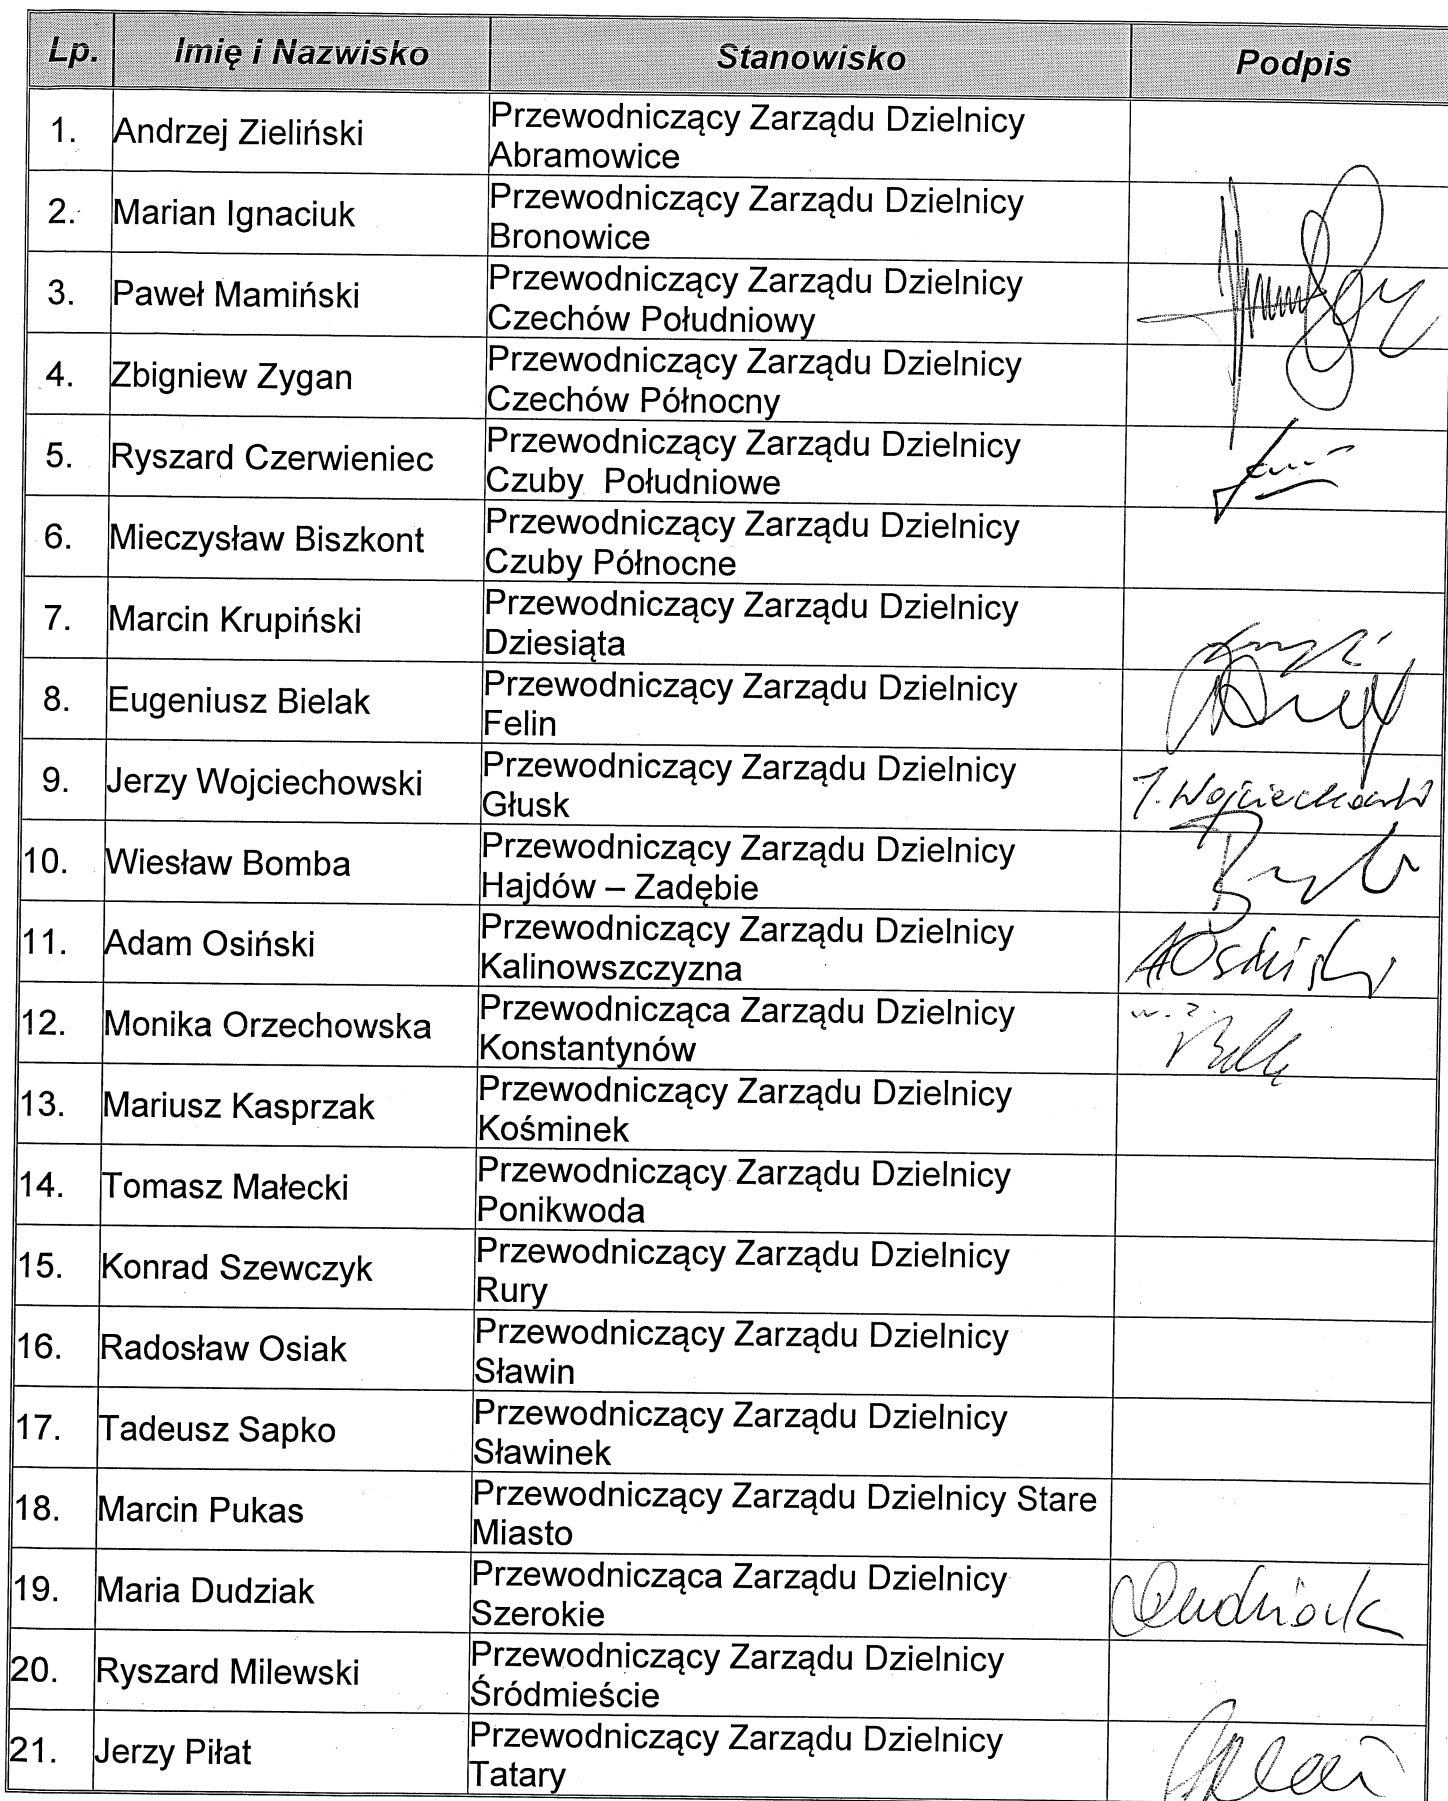 Lp. Imię i Nazwisko Stanowisko Podpis
1. Andrzej Zieliński Przewodniczący Zarządu Dzielnicy
Abramowice
2. Marian Ignaciuk Przewodniczący Zarządu Dzielnicy
Bronowice
3. Paweł Mamiński Przewodniczący Zarządu Dzielnicy
Czechów Południowy
4. Zbigniew Zygan Przewodniczący Zarządu Dzielnicy
Czechów Północny
5. Ryszard Czerwieniec Przewodniczący Zarządu Dzielnicy
Czuby Południowe
6. Mieczysław Biszkont Przewodniczący Zarządu Dzielnicy
Czuby Północne
7. Marcin Krupiński Przewodniczący Zarządu Dzielnicy
Dziesiąta
8. Eugeniusz Bielak Przewodniczący Zarządu Dzielnicy
Felin
9. Jerzy Wojciechowski Przewodniczący Zarządu Dzielnicy J. Wojciechowski
Głusk
10. Wiesław Bomba Przewodniczący Zarządu Dzielnicy
Hajdów – Zadębie
11. Adam Osiński Przewodniczący Zarządu Dzielnicy AOsiński
Kalinowszczyzna
12. Monika Orzechowska Przewodnicząca Zarządu Dzielnicy w. z.
Konstantynów
13. Mariusz Kasprzak Przewodniczący Zarządu Dzielnicy
Kośminek
14. Tomasz Małecki Przewodniczący Zarządu Dzielnicy
Ponikwoda
15. Konrad Szewczyk Przewodniczący Zarządu Dzielnicy
Rury
16. Radosław Osiak Przewodniczący Zarządu Dzielnicy
Sławin
17. Tadeusz Sapko Przewodniczący Zarządu Dzielnicy
Sławinek
18. Marcin Pukas Przewodniczący Zarządu Dzielnicy Stare
Miasto
19. Maria Dudziak Przewodnicząca Zarządu Dzielnicy Dudziak
Szerokie
20. Ryszard Milewski Przewodniczący Zarządu Dzielnicy
Śródmieście
21. Jerzy Piłat Przewodniczący Zarządu Dzielnicy
Tatary